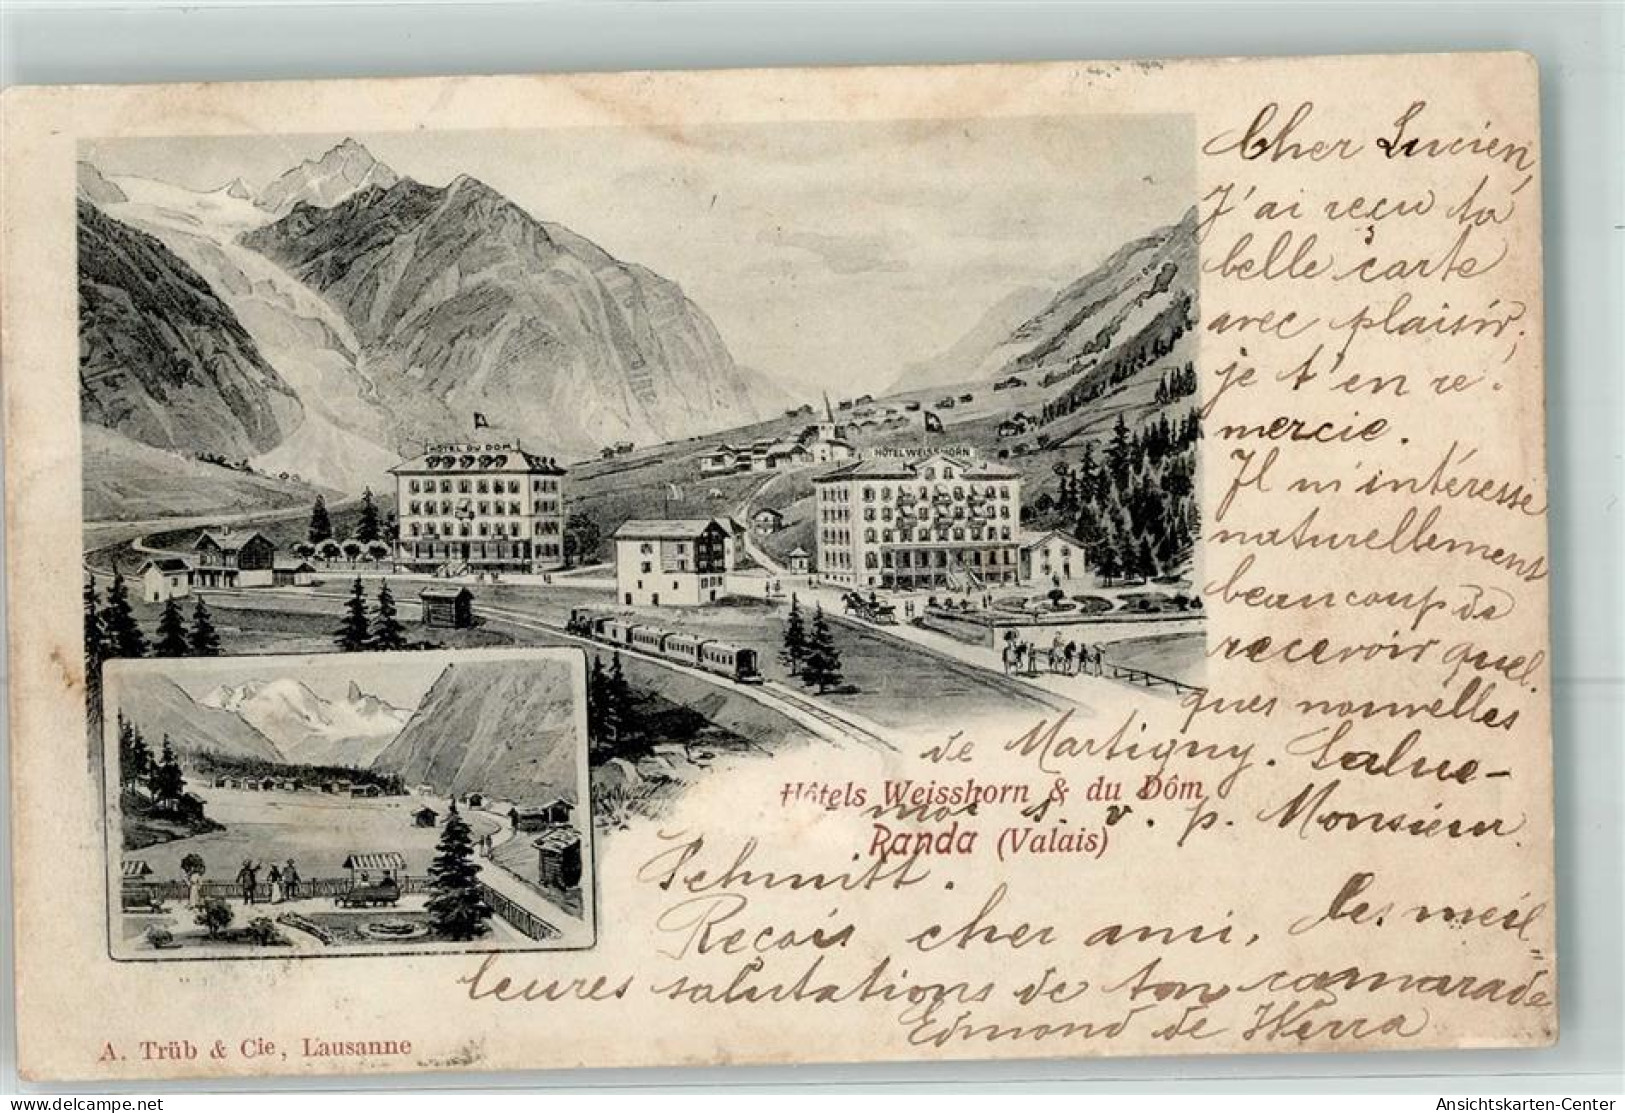 Cher Lucien,
J'ai reçu ta
belle carte
avec plaisir;
je t'en re-
mercie.
Il m'intéresse
naturellement
beaucoup de
recevoir quel-
ques nouvelles
de Martigny. Salue-
moi s. v. p. Monsieur
Schmitt.
Reçois cher ami, les meil-
leures salutations de ton camarade
Edmond de Werra
HÔTEL DU DOM
HÔTEL WEISSHORN
Hôtels Weisshorn & du Dôm
Randa (Valais)
A. Trüb & Cie, Lausanne
www.delcampe.net
Ansichtskarten-Center